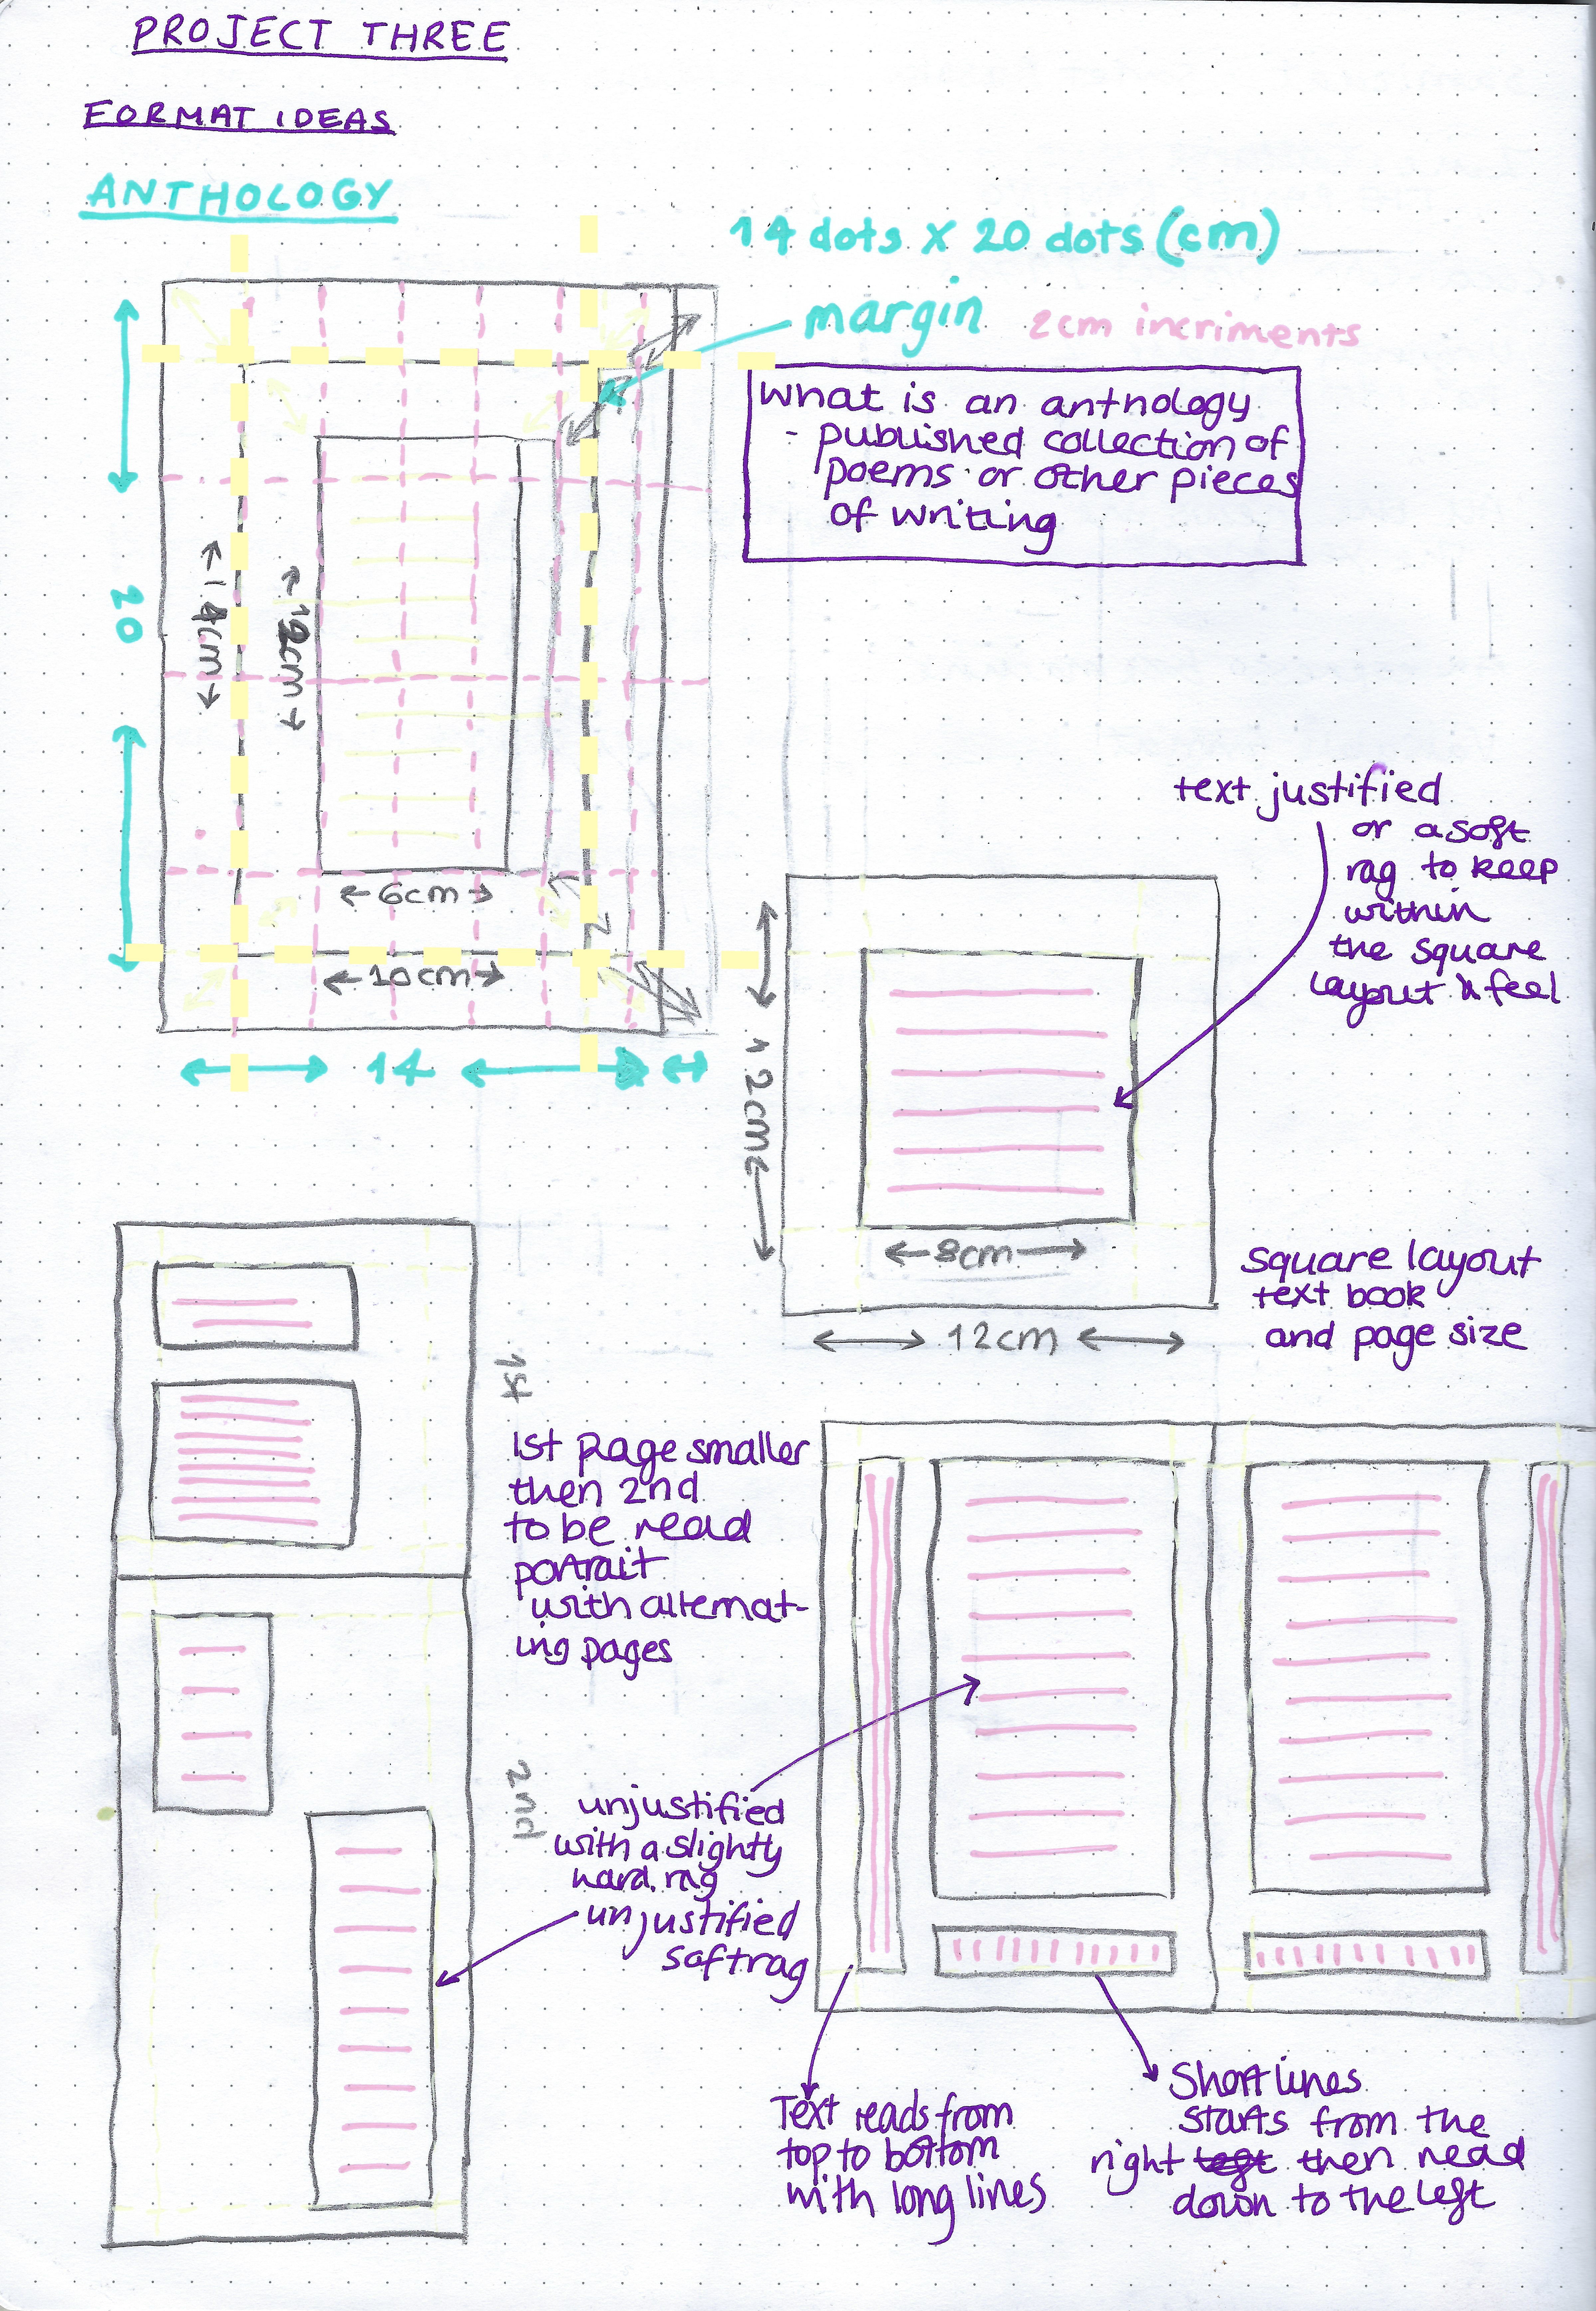 PROJECT THREE
FORMAT IDEAS
ANTHOLOGY
14 dots x 20 dots (cm)
margin
2cm incriments
What is an anthology
- published collection of
poems or other pieces
of writing
20
14cm
12cm
6cm
10cm
14
text justified
or a soft
rag to keep
within
the square
layout & feel
12cm
8cm
12cm
square layout
text book
and page size
1st
1st page smaller
then 2nd
to be read
portrait
with alternat-
ing pages
2nd
unjustified
with a slighty
hard rag
unjustified
soft rag
Text reads from
top to bottom
with long lines
Short lines
starts from the
right left then read
down to the left